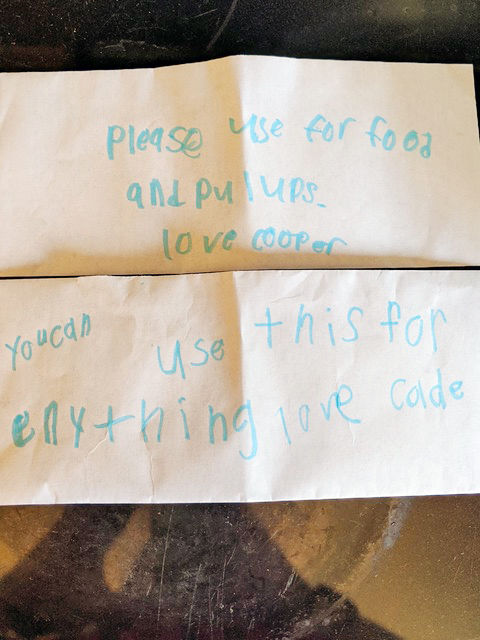 please use for food
and pul ups.
love cooper
you can use this for
enything love cade